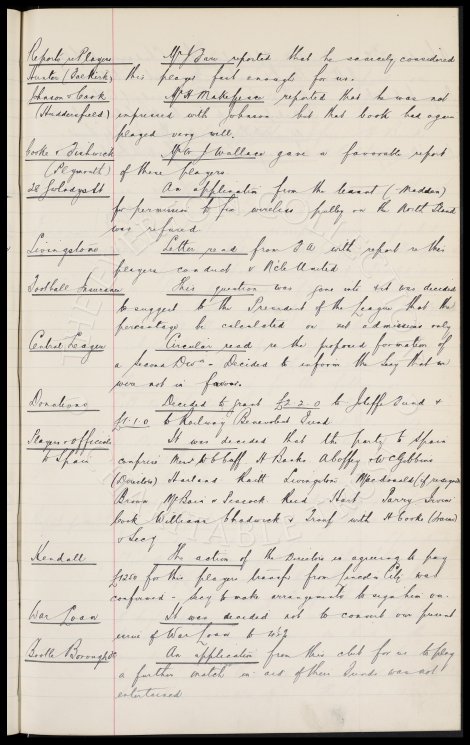 Reports re Players Mr J Baxi reported that he scarcely considered
Hunter (Falkirk) this player fast enough for us.
Johnson & Cook Mr H Makepeace reported that he was not
(Huddersfield) impressed with Johnson but that Cook had again
played very well.
Cooke & Fishwick Mr W J Wallace gave a favorable report
(Plymouth) of these players.
28 Goladys St An application from the tenant (Madden)
for permission to fix wireless pulley on the North Stand
was refused
Livingstone Letter read from F A with report re this
players conduct v N'cle United
Football Insurance This question was gone into & it was decided
to suggest to the President of the League that the
percentage be calculated on net admissions only
Central League Circular read re the proposed formation of
a Second Divn - Decided to inform the Secy that we
were not in favor.
Donations Decided to grant £2.2.0 to Joliffe Fund &
£1.1.0 to Railway Benevolent Fund
Players & officials It was decided that the party to Spain
to Spain comprise Messrs W C Cuff H Banks A Coffey & W C Gibbins
(Directors) Harland Raitt Livingstone Macdonald (if resigned)
Brown McBain & Peacock Reid Hart Parry Irvine
Cook Williams Chadwick & Troup with H Cooke (trainer)
& Secy
Kendall The action of the Directors in agreeing to pay
£1250 for this players transfer from Lincoln City was
confirmed - Secy to make arrangements to sign him on.
War Loan It was decided not to convert our present
issue of War Loan to
Bootle Borough FC An application from this club for us to play
a further match in aid of their Funds was not
entertained